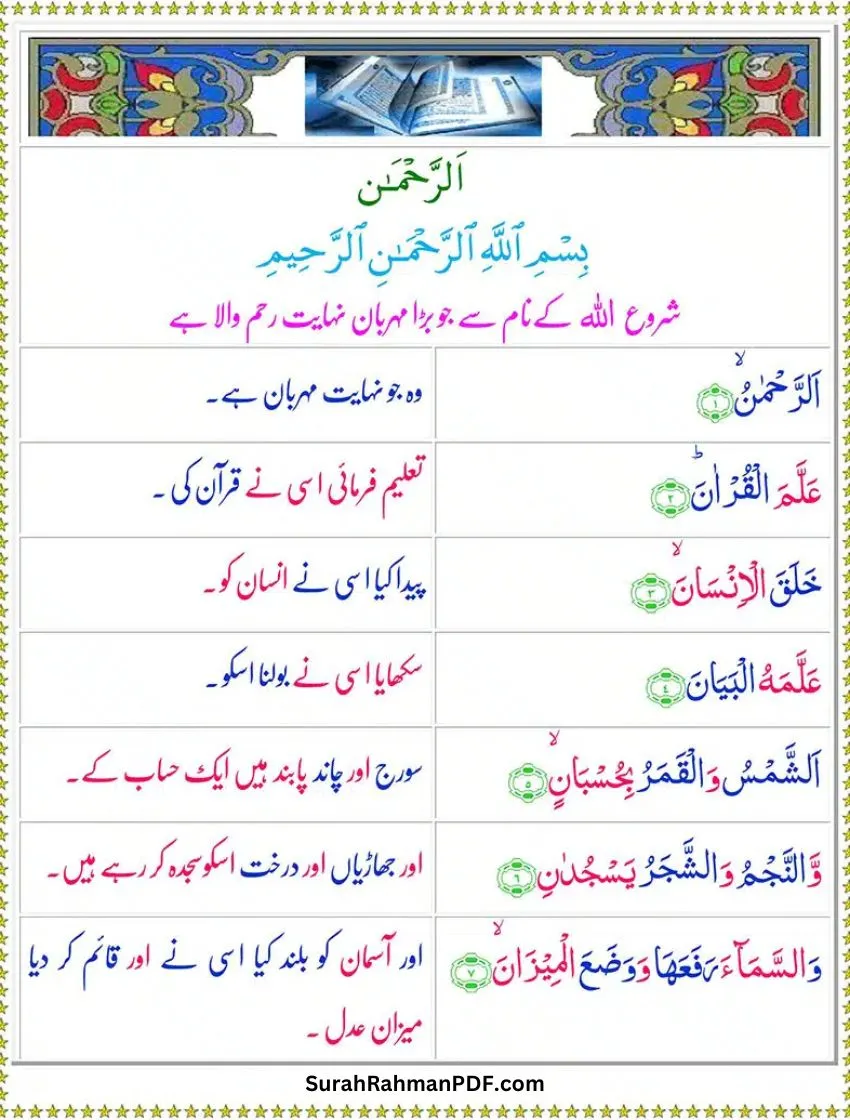 اَلرَّحْمَـٰن
بِسْمِ ٱللَّهِ ٱلرَّحْمَـٰنِ ٱلرَّحِيمِ
شروع اللہ کے نام سے جو بڑا مہربان نہایت رحم والا ہے
اَلرَّحْمٰنُۙ ﴿۱﴾
وہ جو نہایت مہربان ہے۔
عَلَّمَ الْقُرْاٰنَؕ ﴿۲﴾
تعلیم فرمائی اسی نے قرآن کی ۔
خَلَقَ الْاِنْسَانَۙ ﴿۳﴾
پیدا کیا اسی نے انسان کو۔
عَلَّمَهُ الْبَيَانَ ﴿۴﴾
سکھایا اسی نے بولنا اسکو۔
اَلشَّمْسُ وَالْقَمَرُ بِحُسْبَانٍۙ ﴿۵﴾
سورج اور چاند پابند ہیں ایک حساب کے۔
وَّالنَّجْمُ وَالشَّجَرُ يَسْجُدٰنِ ﴿۶﴾
اور جھاڑیاں اور درخت اسکو سجدہ کر رہے ہیں۔
وَالسَّمَآءَ رَفَعَهَا وَوَضَعَ الْمِيْزَانَۙ ﴿۷﴾
اور آسمان کو بلند کیا اسی نے اور قائم کر دیا
میزان عدل ۔
SurahRahmanPDF.com